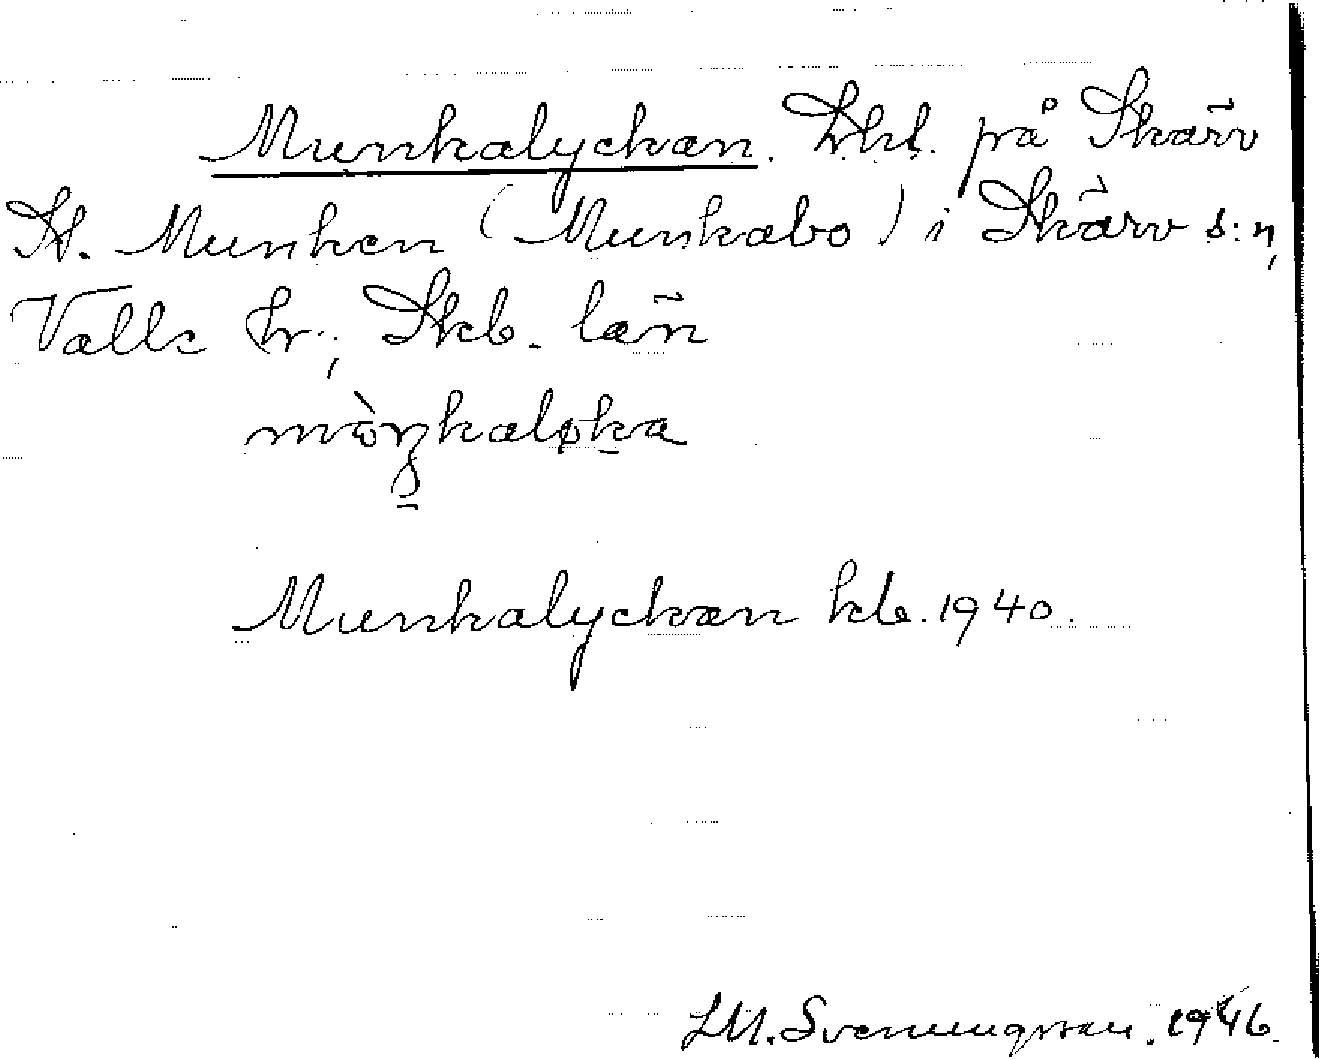 Munkalyckan. Lht. på Skärv
St. Munken (Munkabo) i Skärv s:n,
Valle hr; Skb. län
mòŋkaløka
Munkalyckan kb. 1940.
LM. Svenungsson. 1946.